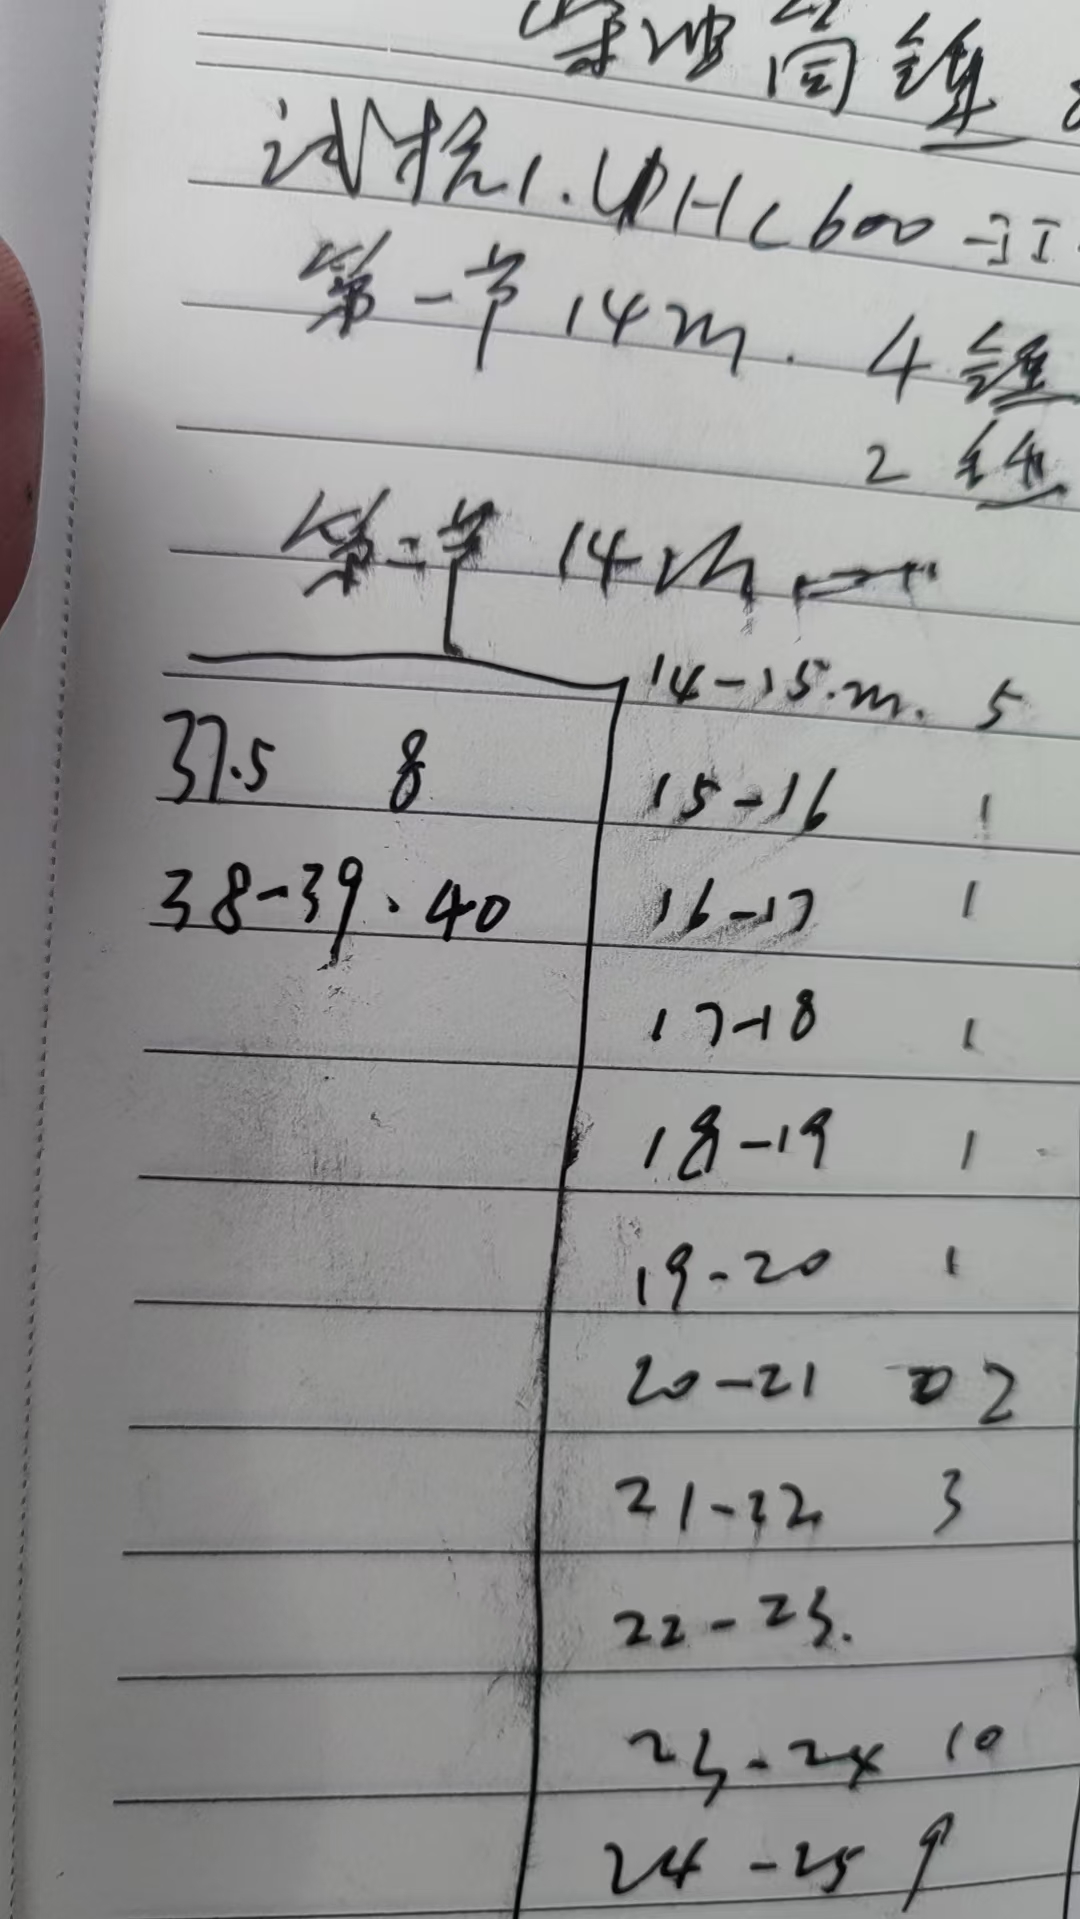 柴油筒锤
试桩1.UHC600-II
第一节14m. 4锤
2锤
第二节 14m
14-15.m. 5
37.5 8
15-16 1
38-39.40
16-17 1
17-18 1
18-19 1
19-20 1
20-21 2
21-22 3
22-23.
23-24 10
24-25 9